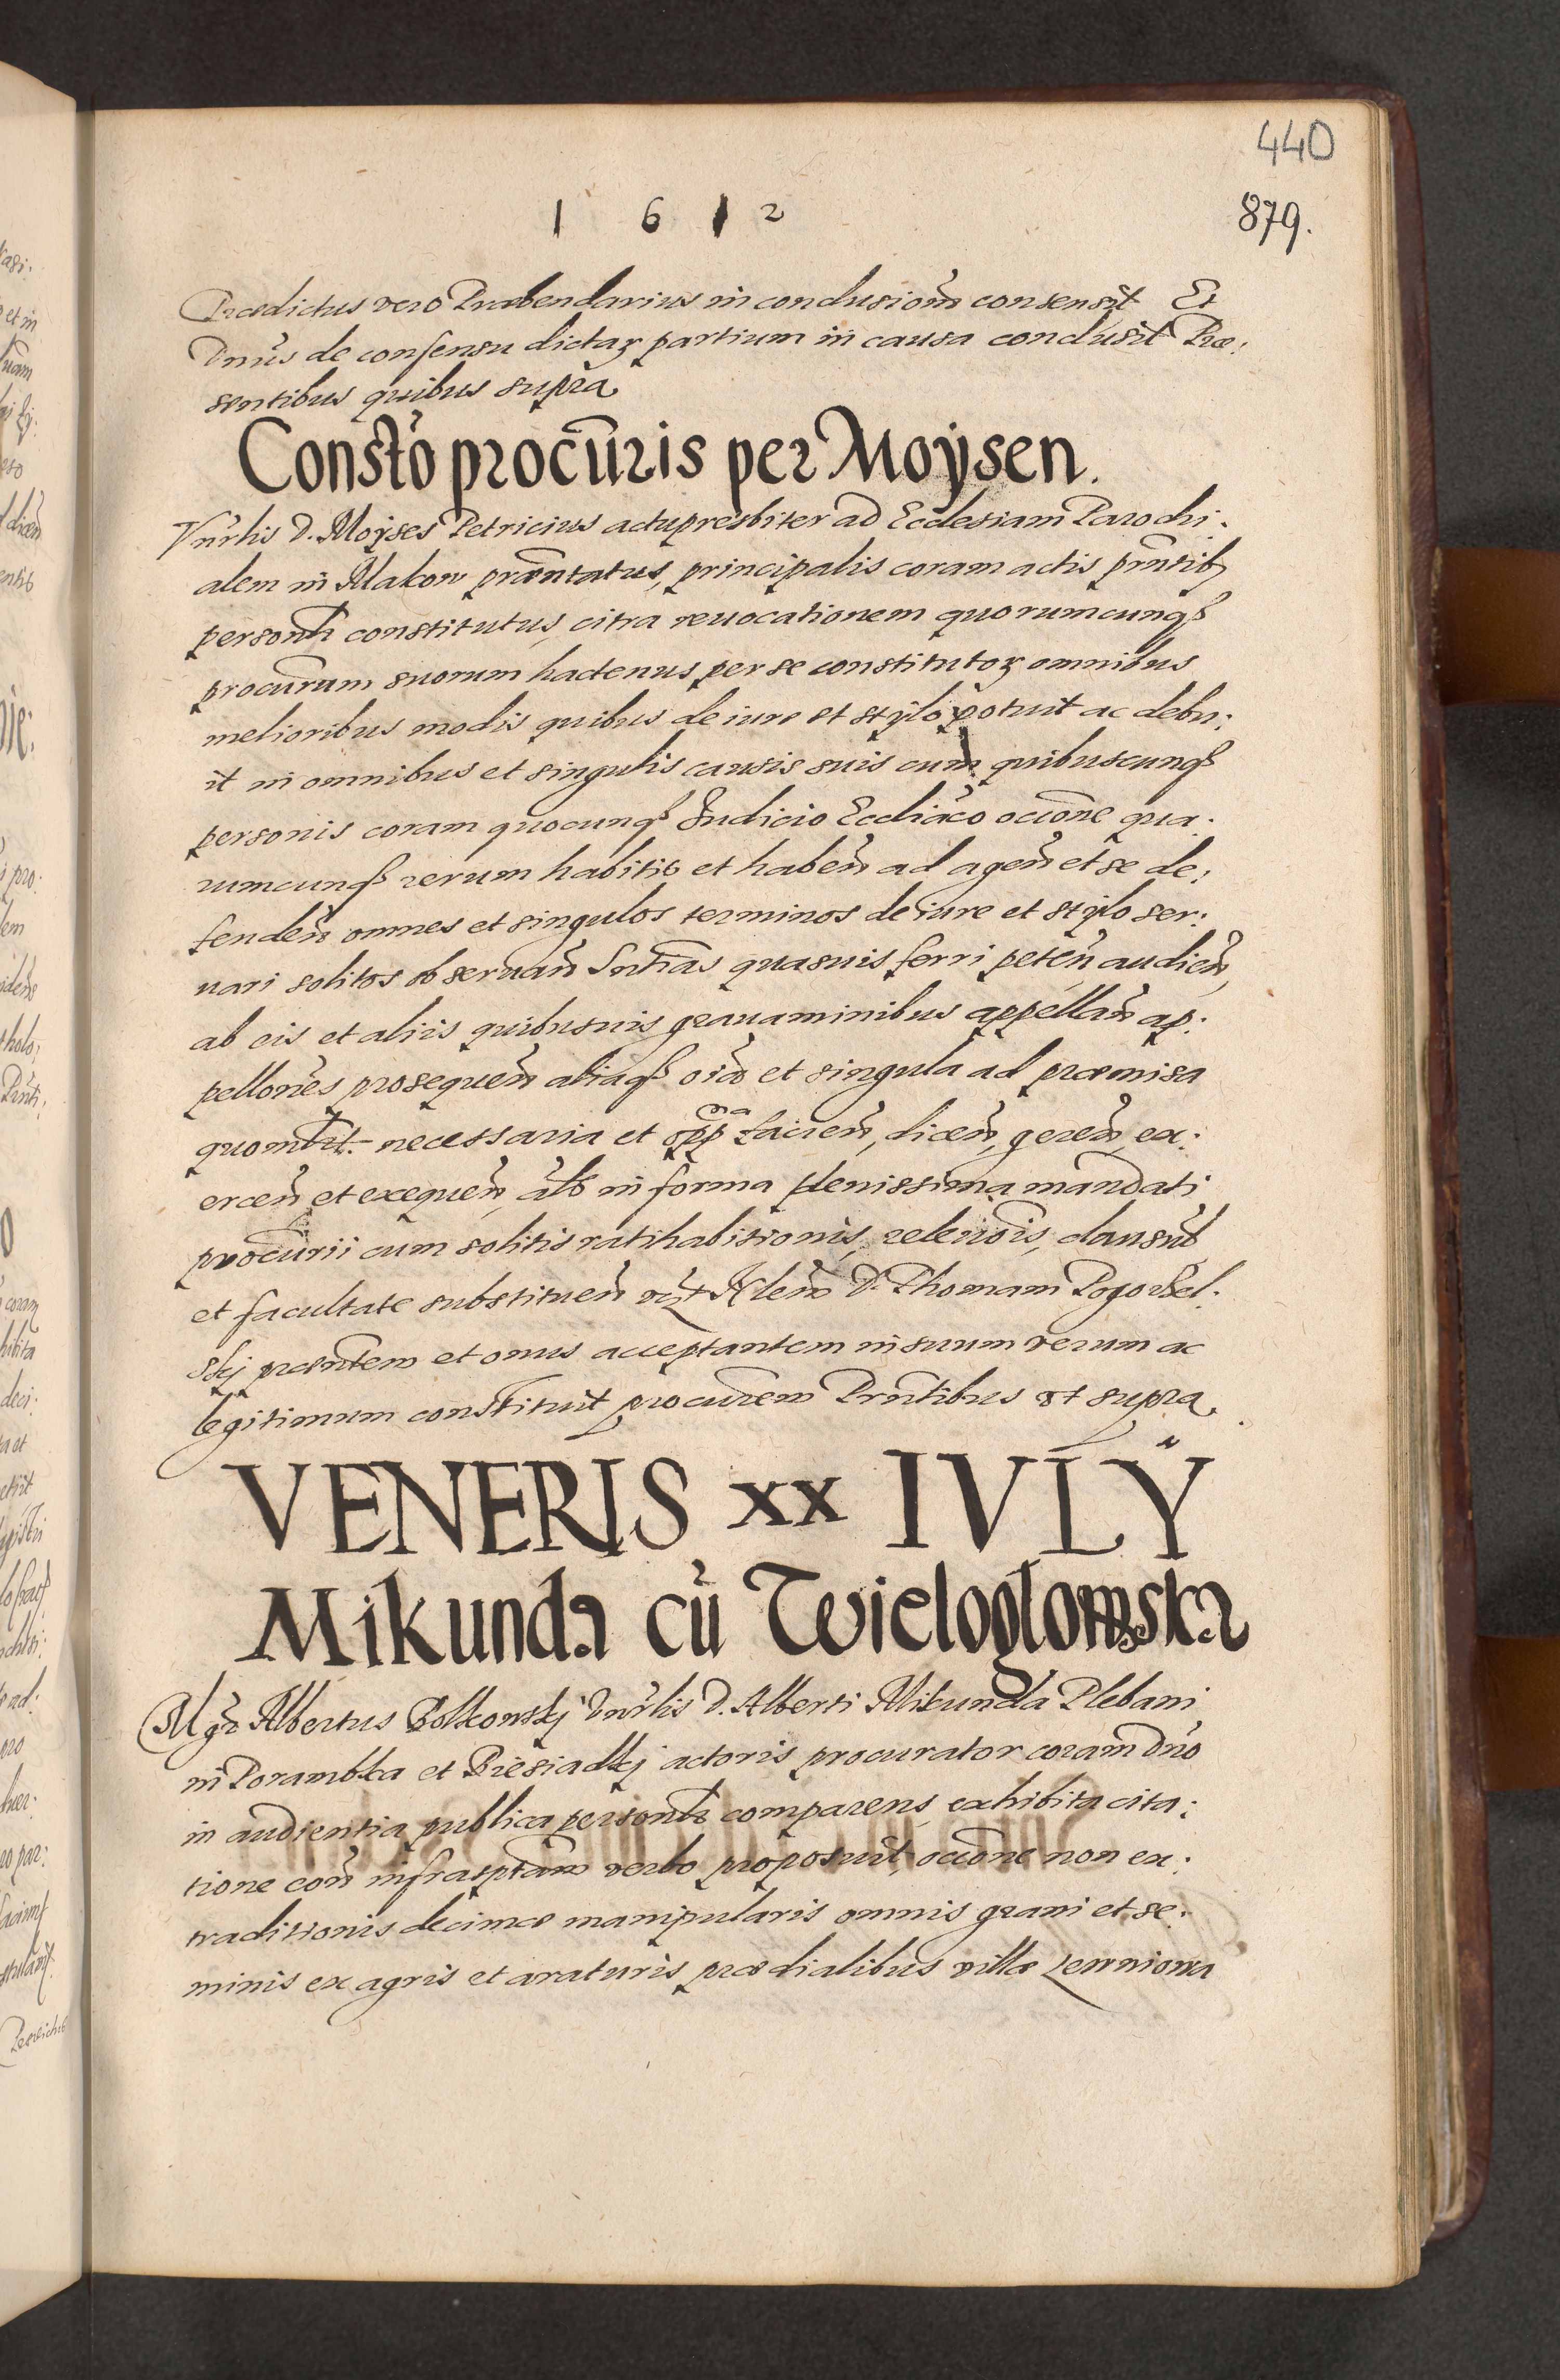 440
1 6 1 2
879.
Prædictus vero Præbendarius in conclusionem consensit Et
Dnus de consensu dictaꝝ partium in causa conclusit Præ:
sentibus quibus supra
Constõ procuris per Moÿsen.
Vnrlis D. Moÿses Petricius actupresbiter ad Ecclesiam Parochi:
alem in Makow præntatus, principalis coram actis prntib
personlr constitutus, citra reuocationem quorumcunqꝫ
procurum suorum hactenus per se constitutoꝝ omnibus
melioribus modis quibus de iure et stÿlo potuit ac debu:
it in omnibus et singulis causis suis cum quibuscunqꝫ
personis coram quocunqꝫ Iudicio Eccliaco ocione qua:
rumcunqꝫ rerum habitis et haben ad agen et se de:
fenden omnes et singulos terminos de iure et stÿlo ser:
uari solitos obseruan Sntias quasuis ferri peten audien,
ab eis et aliis quibusuis grauaminibus appellan ap:
pellones prosequen aliaqꝫ oia et singula ad præmisa
quomlbt necessaria et oppna facien, dicen, geren, ex:
ercen et exequen, als in forma plenissima mandati
procurii cum solitis ratihabitionis, relenois, clausul
et facultate substituen Nlem D. Thomam Pogorzel:
skj præntem et onus acceptantem in suum verum ac
legitimum constituit procurem Prntibus vt supra.
VENERIS xx IVLŸ
Mikunda cũ Wieloglowska
Mgr Albertus Bolkowskj Vnrlis D. Alberti Mikunda Plebani
in Porambka et Biesiadkj actoris procurator coram Dno
in audientia publica personlr comparens, exhibita cita:
tione con infrasptam verbo proposuit, ocione non ex:
traditionis decimæ manipularis omnis grani et se:
minis ex agris et araturis prædialibus villæ Lewniowa